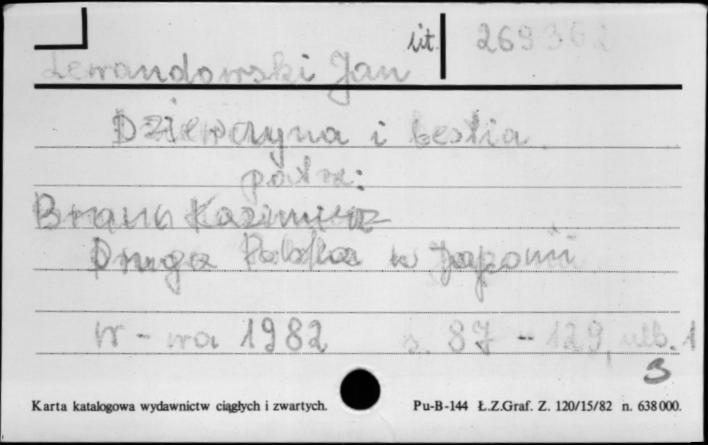 lit. 269362
Lewandowski Jan
Dziewczyna i bestia
patrz:
Kazimierz
Druga Polska w Japonii
W-wa 1982 s. 87-129, nlb. 1
3
Karta katalogowa wydawnictw ciągłych i zwartych. Pu-B-144 Ł.Z.Graf. Z. 120/15/82 n. 638000.